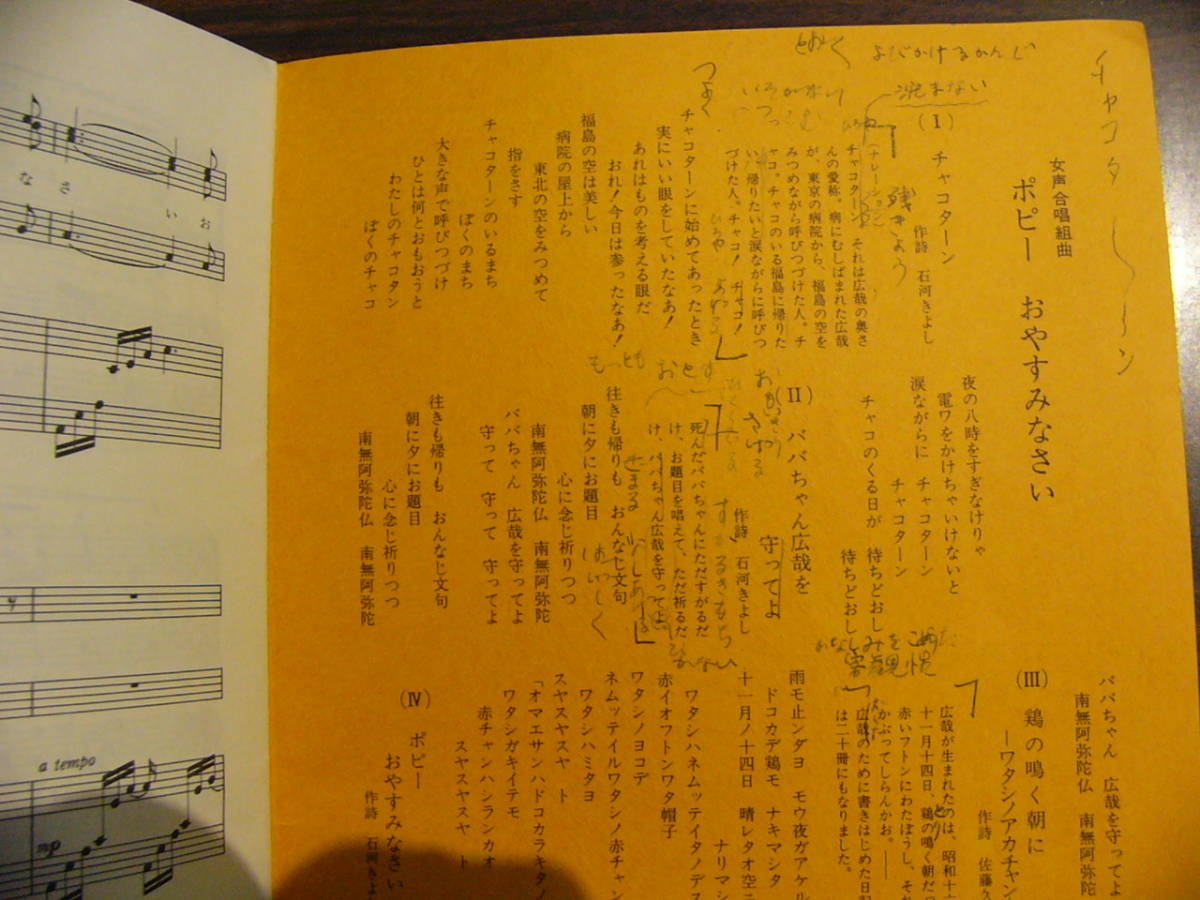 女声合唱組曲
ポピー おやすみなさい
(I) チャコターン
作詩 石河きよし
(ナレーション)
チャコターン それは広哉の奥さ
んの愛称、病にむしばまれた広哉
が、東京の病院から、福島の空を
みつめながら呼びつづけた人。チ
ャコ。チャコのいる福島に帰りた
い、帰りたいと涙ながらに呼びつ
づけた人。チャコ! チャコ!
チャコターンに始めてあったとき
実にいい眼をしていたなあ!
あれはものを考える眼だ
おれ!今日は参ったなあ!
福島の空は美しい
病院の屋上から
東北の空をみつめて
指をさす
チャコターンのいるまち
ぼくのまち
大きな声で呼びつづけ
ひとは何とおもおうと
わたしのチャコタン
ぼくのチャコ
夜の八時をすぎなけりゃ
電ワをかけちゃいけないと
涙ながらに チャコターン
チャコターン
チャコのくる日が 待ちどおし
待ちどおし
(II) ババちゃん広哉を
守ってよ
作詩 石河きよし
死んだババちゃんにただすがるだ
け、お題目を唱えて、ただ祈るだ
け、ババちゃん広哉を守ってよ
往きも帰りも おんなじ文句
朝に夕にお題目
心に念じ祈りつつ
南無阿弥陀仏 南無阿弥陀
ババちゃん 広哉を守ってよ
守って 守って 守ってよ
往きも帰りも おんなじ文句
朝に夕にお題目
心に念じ祈りつつ
南無阿弥陀仏 南無阿弥陀
ババちゃん 広哉を守ってよ
南無阿弥陀仏 南無阿弥陀
(III) 鶏の鳴く朝に
―ワタシノアカチャン
作詩 佐藤久
広哉が生まれたのは、昭和十
十一月十四日、鶏の鳴く朝だ
赤いフトンにわたぼうし、そ
かぶってしらんかお。――
広哉のために書きはじめた日
は二十冊にもなりました。
雨モ止ンダヨ モウ夜ガアケル
ドコカデ鶏モ ナキマシタ
十一月ノ十四日 晴レタオ空
ナリマシ
ワタシハネムッテイタノデス
赤イオフトンワタ帽子
ワタシノヨコデ
ネムッテイルワタシノ赤チャン
ワタシハミタヨ
スヤスヤスヤ ト
「オマエサンハドコカラキタノ
ワタシガキイテモ
赤チャンハシランカオ
スヤスヤスヤ ト
(IV) ポピー
おやすみなさい
作詩 石河きよ
チャコターン
よびかけるかんじ
沈まない
つよく
残きょう
もっとも おとす
すがるきもち
かなしみをこめた
客観視
な さ い お
a tempo
mp